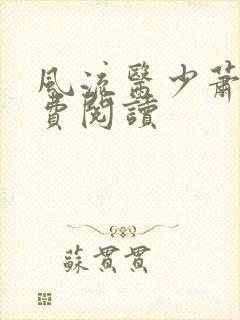 風流醫少蕭
費閱讀
蘇貫貫